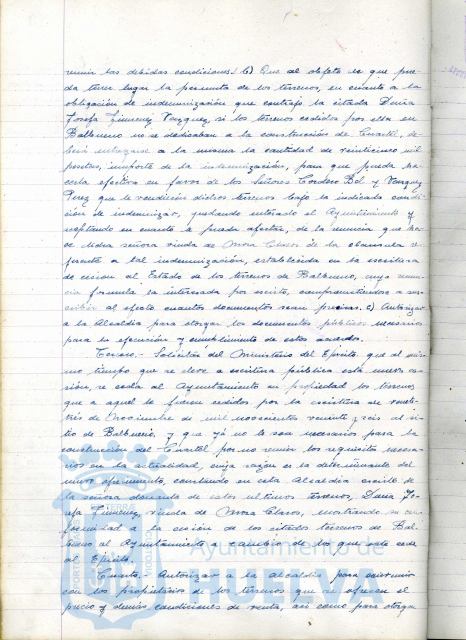 reunir las debidas condiciones. b) Que al objeto de que pue-
da tener lugar la permuta de los terrenos, en cuanto a la
obligación de indemnización que contrajo la citada Doña
Josefa Jimenez Vazquez, si los terrenos cedidos por ella en
Balbueno no se dedicaban a la construcción de Cuartel, de-
berá entregarse a la misma la cantidad de veinticinco mil
pesetas, importe de la indemnización, para que pueda ha-
cerla efectiva en favor de los Señores Cordero Bel y Vazquez
Perez que le vendieron dichos terrenos bajo la indicada condi-
ción de indemnizar, quedando enterado el Ayuntamiento y
aceptando en cuanto le pueda afectar, de la renuncia que ha-
ce dicha señora viuda de Mora Claros de la clausula re-
ferente a tal indemnización, establecida en la escritura
de cesion al Estado de los terrenos de Balbueno, cuya renun-
cia formula la interesada por escrito, comprometiendose a sus-
cribir al efecto cuantos documentos sean precisos. c) Autorizar
a la Alcaldia para otorgar los documentos públicos necesarios
para la ejecución y cumplimiento de estos acuerdos.
Tercero.- Solicitar del Ministerio del Ejército, que al mis-
mo tiempo que se eleve a escritura pública esta nueva ce-
sión, se ceda al Ayuntamiento en propiedad los terrenos
que a aquel le fueron cedidos por la escritura de veinti-
trés de Noviembre de mil novecientos veinte y seis al si-
tio de Balbueno, y que ya no le son necesarios para la
construcción del Cuartel por no reunir los requisitos necesa-
rios en la actualidad, cuya razon es la determinante del
nuevo ofrecimiento, constando en esta Alcaldia escrito de
la señora donante de estos ultimos terrenos, Doña Jo-
sefa Jimenez viuda de Mora Claros, mostrando su con-
formidad a la cesión de los citados terrenos de Bal-
bueno al Ayuntamiento a cambio de los que este cede
al Ejército.
Cuarto.- Autorizar a la alcaldia para convenir
con los propietarios de los terrenos que se ofrecen el
precio y demás condiciones de venta, así como para otorgar
Ayuntamiento de
HUELVA